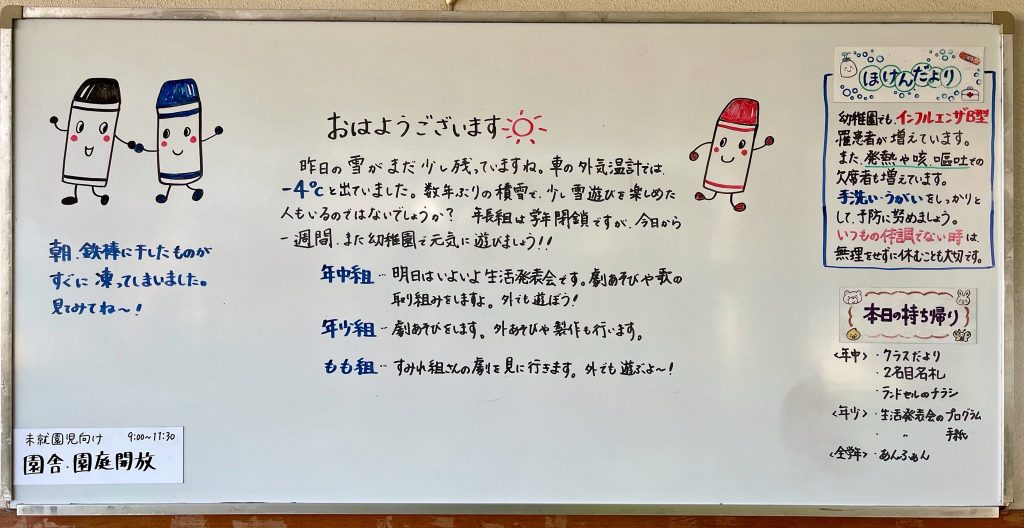 おはようございます
昨日の雪がまだ少し残っていますね。車の外気温計では
-4℃と出ていました。数年ぶりの積雪で、少し雪遊びを楽しめた
人もいるのではないでしょうか？ 年長組は学年閉鎖ですが、今日から
一週間、また幼稚園で元気に遊びましょう!!
年中組…明日はいよいよ生活発表会です。劇あそびや歌の
取り組みをしますよ。外でも遊ぼう!
年少組…劇あそびをします。外あそびや製作も行います。
もも組…すみれ組さんの劇を見に行きます。外でも遊ぶよ〜!
朝、鉄棒に干したものが
すぐに凍ってしまいました。
見てみてね〜!
未就園児向け 9:00〜11:30
園舎・園庭開放
ほけんだより
幼稚園でも、インフルエンザB型
罹患者が増えています。
また、発熱や咳、嘔吐での
欠席者も増えています。
手洗い・うがいをしっかりと
して、予防に努めましょう。
いつもの体調でない時は、
無理をせずに休むことも大切です。
本日の持ち帰り
<年中>・クラスだより
・2名目名札
・ランドセルのチラシ
<年少>・生活発表会のプログラム
・ 〃 手紙
<全学年>・あんふぁん